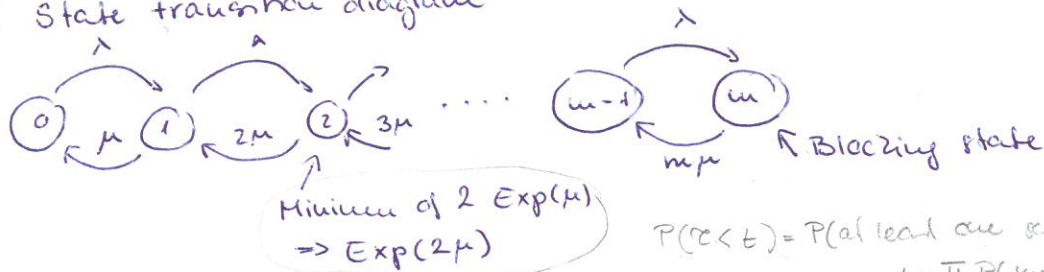 State transition diagram
λ λ λ
0 1 2 .... m-1 m
μ 2μ 3μ mμ
Blocking state
Minimum of 2 Exp(μ)
=> Exp(2μ)
P(τ<t) = P(at least one